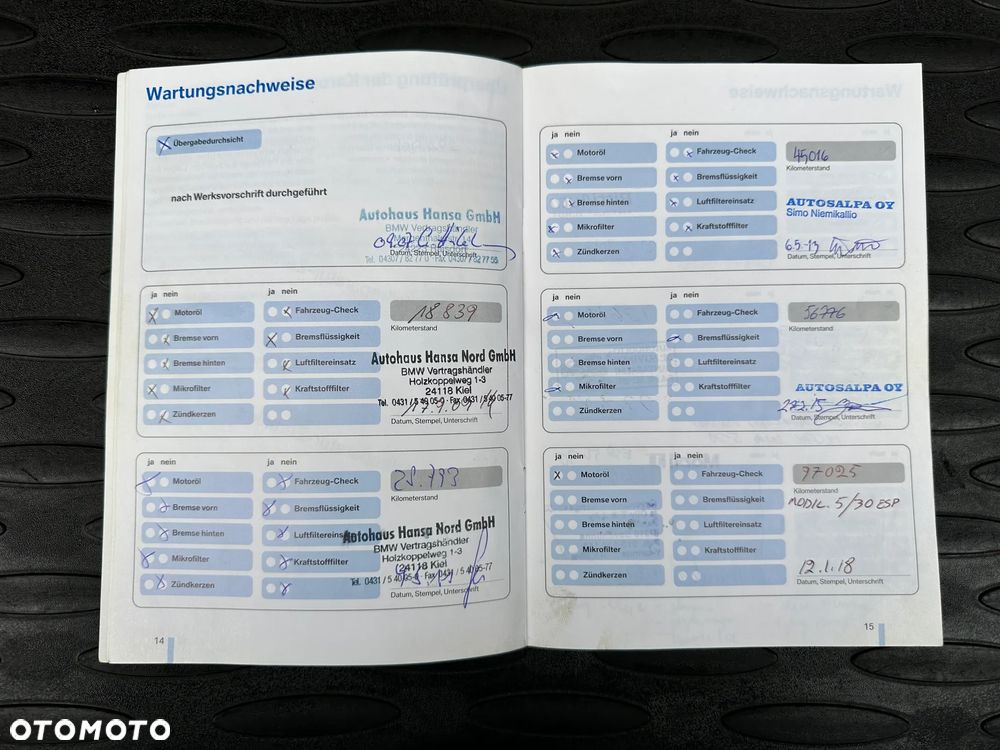 Wartungsnachweise
Übergabedurchsicht
nach Werksvorschrift durchgeführt
Autohaus Hansa GmbH
BMW Vertragshändler
09.07
Datum, Stempel, Unterschrift
ja nein
ja nein
Motoröl
Fahrzeug-Check
18839
Bremse vorn
Bremsflüssigkeit
Kilometerstand
Bremse hinten
Luftfiltereinsatz
Mikrofilter
Kraftstofffilter
Zündkerzen
Autohaus Hansa Nord GmbH
BMW Vertragshändler
Holzkoppelweg 1-3
24118 Kiel
Tel. 0431 / 5 40 05-0 · Fax 0431 / 5 40 05-77
Datum, Stempel, Unterschrift
ja nein
ja nein
Motoröl
Fahrzeug-Check
25.793
Bremse vorn
Bremsflüssigkeit
Kilometerstand
Bremse hinten
Luftfiltereinsatz
Mikrofilter
Kraftstofffilter
Zündkerzen
Autohaus Hansa Nord GmbH
BMW Vertragshändler
Holzkoppelweg 1-3
24118 Kiel
Tel. 0431 / 5 40 05-0 · Fax 0431 / 5 40 05-77
Datum, Stempel, Unterschrift
14
ja nein
ja nein
Motoröl
Fahrzeug-Check
45016
Bremse vorn
Bremsflüssigkeit
Kilometerstand
Bremse hinten
Luftfiltereinsatz
Mikrofilter
Kraftstofffilter
Zündkerzen
AUTOSALPA OY
Simo Niemikallio
6.5-13
Datum, Stempel, Unterschrift
ja nein
ja nein
Motoröl
Fahrzeug-Check
56776
Bremse vorn
Bremsflüssigkeit
Kilometerstand
Bremse hinten
Luftfiltereinsatz
Mikrofilter
Kraftstofffilter
Zündkerzen
AUTOSALPA OY
Datum, Stempel, Unterschrift
ja nein
ja nein
Motoröl
Fahrzeug-Check
97025
Bremse vorn
Bremsflüssigkeit
Kilometerstand
5/30 ESP
Bremse hinten
Luftfiltereinsatz
Mikrofilter
Kraftstofffilter
Zündkerzen
12.1.18
Datum, Stempel, Unterschrift
15
OTOMOTO